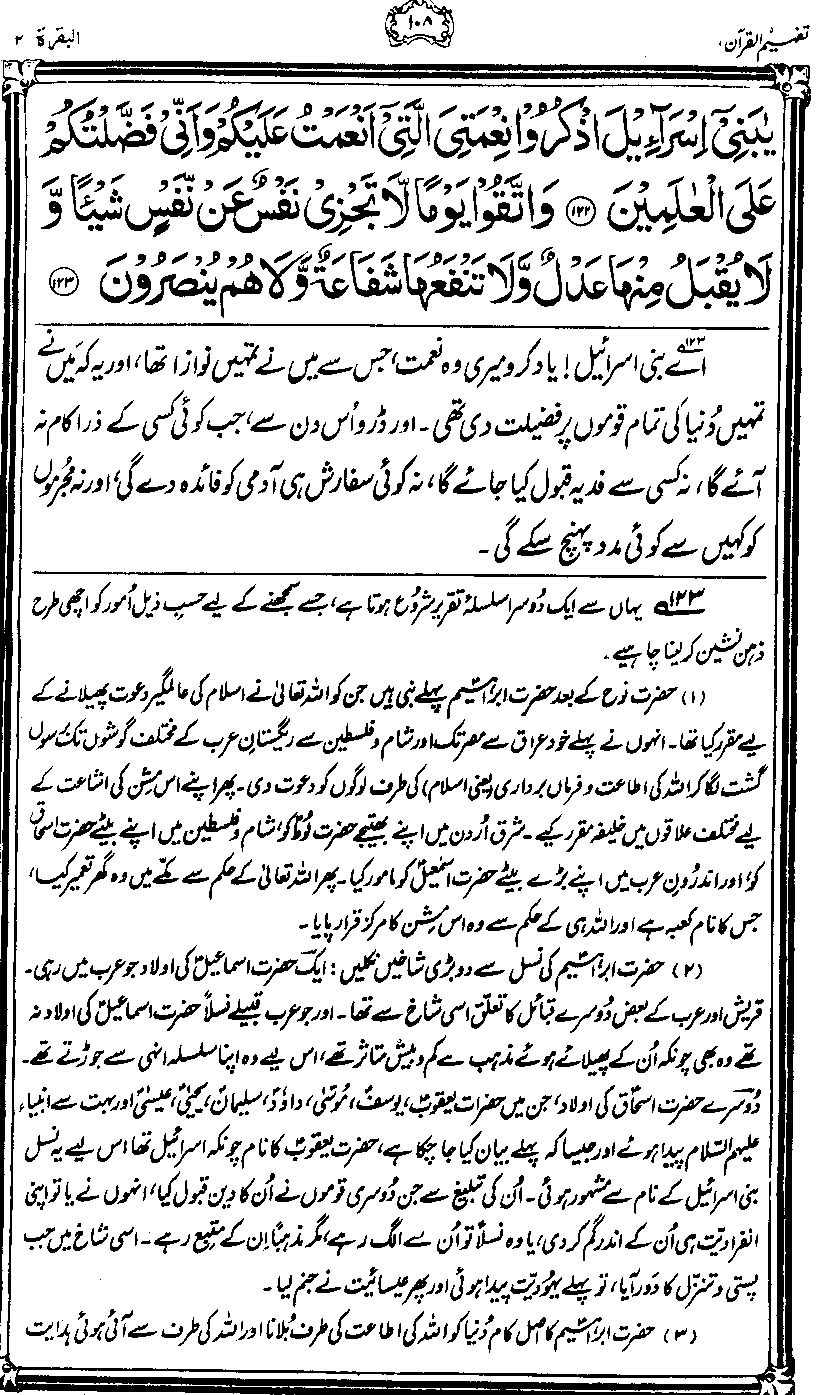 تفہیم القرآن،
۱۰۸
البقرۃ ۲
یٰبَنِیْۤ اِسْرَآءِیْلَ اذْكُرُوْا نِعْمَتِیَ الَّتِیْۤ اَنْعَمْتُ عَلَیْكُمْ وَ اَنِّیْ فَضَّلْتُكُمْ
عَلَى الْعٰلَمِیْنَ ﴿۱۲۲﴾ وَ اتَّقُوْا یَوْمًا لَّا تَجْزِیْ نَفْسٌ عَنْ نَّفْسٍ شَیْئًا وَّ
لَا یُقْبَلُ مِنْهَا عَدْلٌ وَّ لَا تَنْفَعُهَا شَفَاعَةٌ وَّ لَا هُمْ یُنْصَرُوْنَ ﴿۱۲۳﴾
۱۲۳؎ اے بنی اسرائیل! یاد کرو میری وہ نعمت، جس سے میں نے تمہیں نوازا تھا، اور یہ کہ مَیں نے
تمہیں دُنیا کی تمام قوموں پر فضیلت دی تھی۔ اور ڈرو اُس دن سے، جب کوئی کسی کے ذرا کام نہ
آئے گا، نہ کسی سے فدیہ قبول کیا جائے گا، نہ کوئی سفارش ہی آدمی کو فائدہ دے گی، اور نہ مجرموں
کو کہیں سے کوئی مدد پہنچ سکے گی۔
۱۲۳؎ یہاں سے ایک دُوسرا سلسلۂ تقریر شروع ہوتا ہے، جسے سمجھنے کے لیے حسبِ ذیل اُمور کو اچھی طرح
ذہن نشین کر لینا چاہیے۔
(۱) حضرت نوحؑ کے بعد حضرت ابراہیمؑ پہلے نبی ہیں جن کو اللہ تعالیٰ نے اسلام کی عالمگیر دعوت پھیلانے کے
لیے مقرر کیا تھا۔ انہوں نے پہلے خود عراق سے مصر تک اور شام و فلسطین سے ریگستانِ عرب کے مختلف گوشوں تک برسوں
گشت لگا کر اللہ کی اطاعت و فرماں برداری (یعنی اسلام) کی طرف لوگوں کو دعوت دی۔ پھر اپنے اس مِشن کی اشاعت کے
لیے مختلف علاقوں میں خلیفہ مقرر کیے۔ شرق اُردن میں اپنے بھتیجے حضرت لُوطؑ کو، شام و فلسطین میں اپنے بیٹے حضرت اسحاقؑ
کو، اور اندرُونِ عرب میں اپنے بڑے بیٹے حضرت اسمٰعیلؑ کو مامور کیا۔ پھر اللہ تعالیٰ کے حکم سے مکّے میں وہ گھر تعمیر کیا،
جس کا نام کعبہ ہے اور اللہ ہی کے حکم سے وہ اس مِشن کا مرکز قرار پایا۔
(۲) حضرت ابراہیمؑ کی نسل سے دو بڑی شاخیں نکلیں: ایک حضرت اسماعیلؑ کی اولاد جو عرب میں رہی۔
قریش اور عرب کے بعض دُوسرے قبائل کا تعلق اسی شاخ سے تھا۔ اور جو عرب قبیلے نسلاً حضرت اسماعیلؑ کی اولاد نہ
تھے وہ بھی چونکہ اُن کے پھیلائے ہوئے مذہب سے کم و بیش متاثر تھے، اس لیے وہ اپنا سلسلہ انہی سے جوڑتے تھے۔
دُوسرے حضرت اسحاقؑ کی اولاد، جن میں حضرات یعقوبؑ، یوسفؑ، مُوسیٰؑ، داؤدؑ، سلیمانؑ، یحییٰؑ، عیسیٰؑ اور بہت سے انبیاء
علیہم السّلام پیدا ہوئے اور جیسا کہ پہلے بیان کیا جا چکا ہے، حضرت یعقوبؑ کا نام چونکہ اسرائیل تھا اس لیے یہ نسل
بنی اسرائیل کے نام سے مشہور ہوئی۔ اُن کی تبلیغ سے جن دُوسری قوموں نے اُن کا دین قبول کیا، انہوں نے یا تو اپنی
انفرادیّت ہی اُن کے اندر گم کر دی، یا وہ نسلاً تو اُن سے الگ رہے، مگر مذہباً اِن کے متبع رہے۔ اسی شاخ میں جب
پستی و تنزّل کا دَور آیا، تو پہلے یہُودیّت پیدا ہوئی اور پھر عیسائیت نے جنم لیا۔
(۳) حضرت ابراہیمؑ کا اصل کام دُنیا کو اللہ کی اطاعت کی طرف بُلانا اور اللہ کی طرف سے آئی ہوئی ہدایت